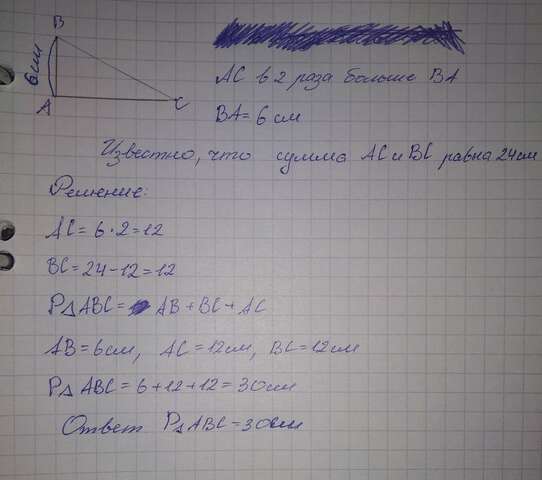 B
6см
A
C
AC в 2 раза больше BA
BA = 6 см
Известно, что сумма AC и BC равна 24см
Решение:
AC = 6 · 2 = 12
BC = 24 - 12 = 12
P△ ABC = AB + BC + AC
AB = 6см, AC = 12см, BC = 12см
P△ ABC = 6 + 12 + 12 = 30см
Ответ P△ ABC = 30см